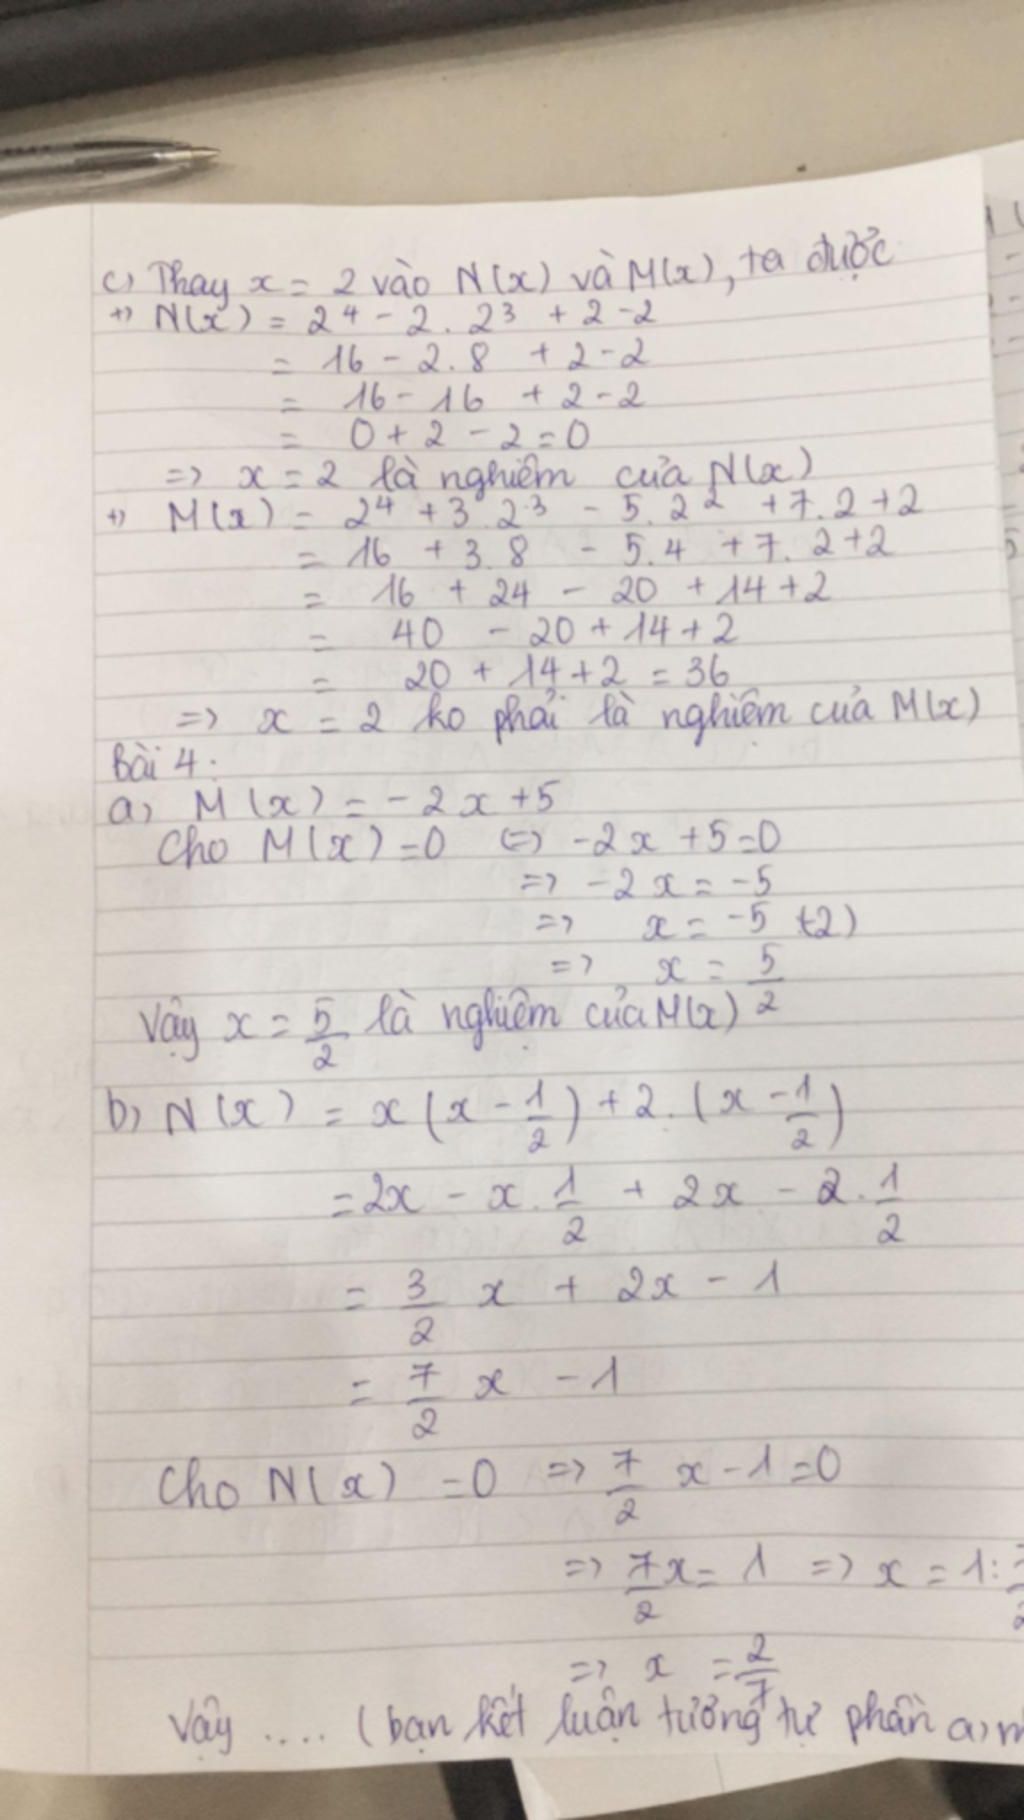 c) Thay x = 2 vào N(x) và M(x), ta được
+) N(x) = 2⁴ - 2 . 2³ + 2 - 2
= 16 - 2.8 + 2 - 2
= 16 - 16 + 2 - 2
= 0 + 2 - 2 = 0
=> x = 2 là nghiệm của N(x)
+) M(x) = 2⁴ + 3.2³ - 5.2² + 7.2 + 2
= 16 + 3.8 - 5.4 + 7.2 + 2
= 16 + 24 - 20 + 14 + 2
= 40 - 20 + 14 + 2
= 20 + 14 + 2 = 36
=> x = 2 ko phải là nghiệm của M(x)
Bài 4:
a) M(x) = -2x + 5
Cho M(x) = 0 <=> -2x + 5 = 0
=> -2x = -5
=> x = -5 (-2)
=> x = 5/2
Vậy x = 5/2 là nghiệm của M(x)
b) N(x) = x(x - 1/2) + 2.(x - 1/2)
= 2x - x . 1/2 + 2x - 2 . 1/2
= 3/2 x + 2x - 1
= 7/2 x - 1
Cho N(x) = 0 => 7/2 x - 1 = 0
=> 7/2 x = 1 => x = 1 :
=> x = 2/7
Vậy .... (bạn kết luận tương tự phần a)